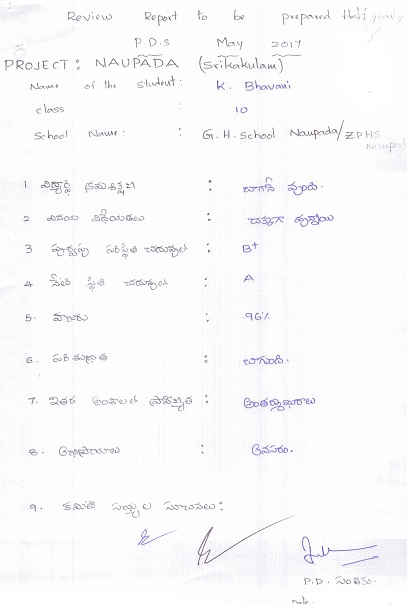 Review Report to be prepared Half yearly
P.D.S May 2017
PROJECT: NAUPADA (Srikakulam)
Name of the Student: K. Bhavani
class : 10
School Name: : G.H. School Naupada/ZPHS
Naupad
1 విద్యార్థి క్రమశిక్షణ : బాగానే వుంది.
2 వినయ విధేయతలు : చక్కగా వున్నాయి
3 పూర్వపు పరిస్థితి చదువులో : B+
4 నేటి స్థితి చదువులో : A
5. హాజరు : 96%
6. పరిశుభ్రత : బాగుంది.
7. ఇతర అంశాలలో ప్రావీణ్యత :
8. అభిప్రాయాలు : అవసరం.
9. కమిటీ సభ్యుల సూచనలు:
P.D. సంతకం.
Date.